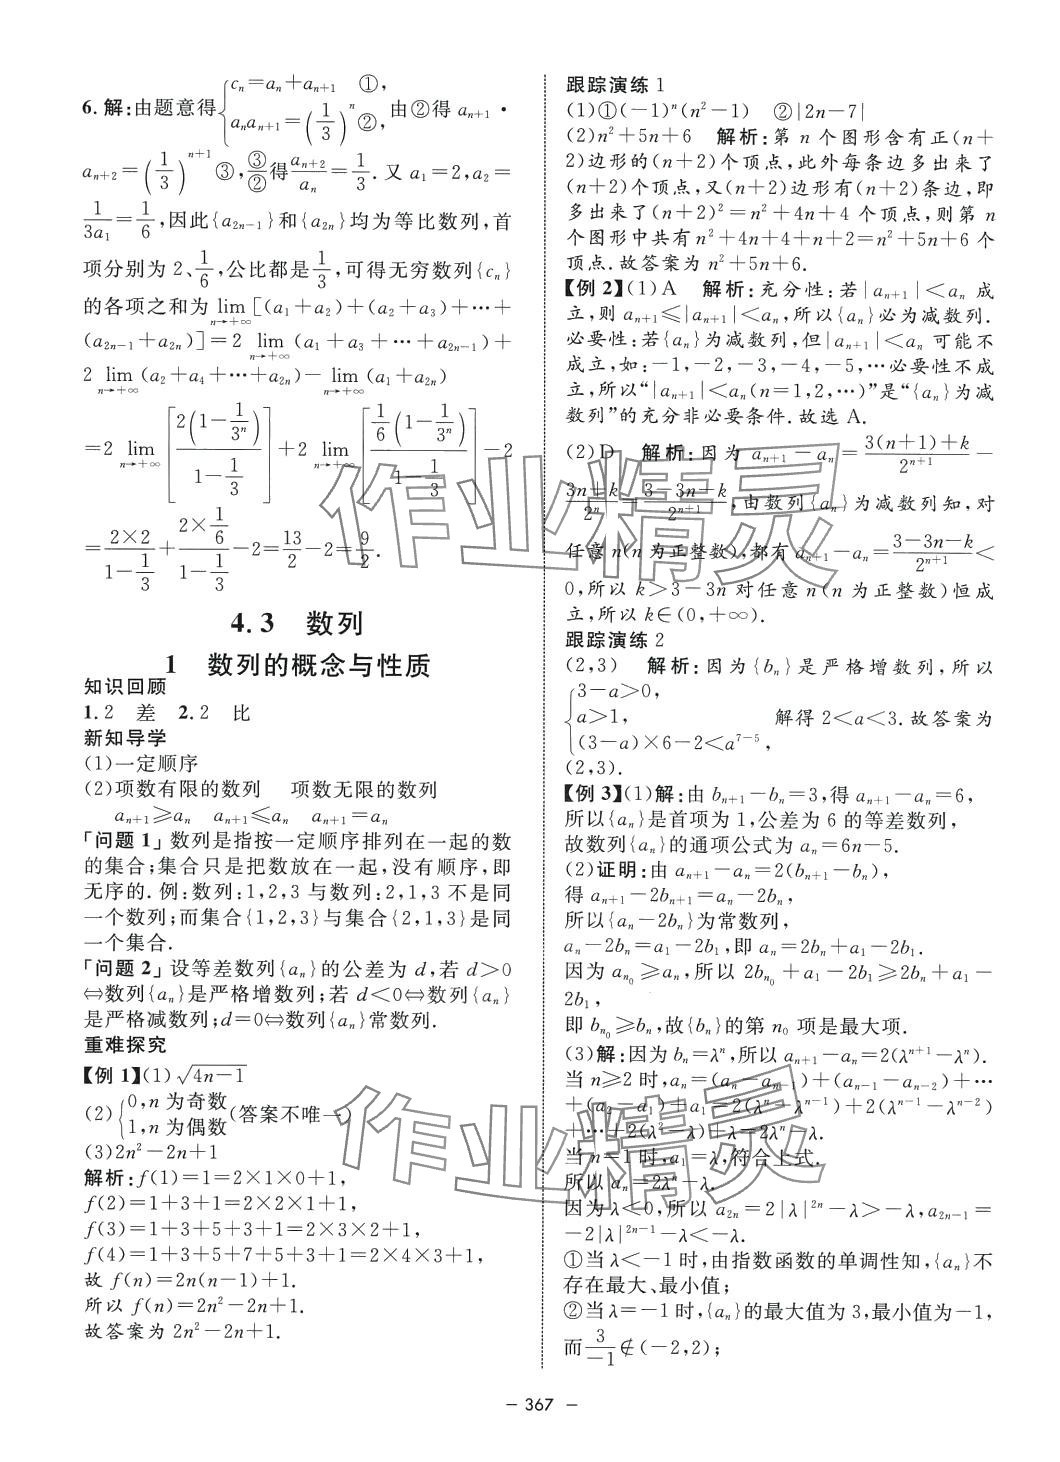 6.解:由题意得{cₙ=aₙ+aₙ₊₁ ①, aₙaₙ₊₁=(1/3)ⁿ ②, 由②得 aₙ₊₁·
aₙ₊₂=(1/3)ⁿ⁺¹ ③,③/②得aₙ₊₂/aₙ=1/3.又 a₁=2,a₂=
1/3a₁=1/6,因此{a₂ₙ₋₁}和{a₂ₙ}均为等比数列,首
项分别为 2、1/6,公比都是1/3,可得无穷数列{cₙ}
的各项之和为 lim(n→+∞)[(a₁+a₂)+(a₂+a₃)+⋯+
(a₂ₙ₋₁+a₂ₙ)]=2 lim(n→+∞)(a₁+a₃+⋯+a₂ₙ₋₁)+
2 lim(n→+∞)(a₂+a₄+⋯+a₂ₙ)-lim(n→+∞)(a₁+a₂ₙ)
=2 lim(n→+∞)[2(1-1/3ⁿ)/(1-1/3)]+2 lim(n→+∞)[1/6(1-1/3ⁿ)/(1-1/3)]-2
=2×2/(1-1/3)+(2×1/6)/(1-1/3)-2=13/2-2=9/2.
4.3 数列
1 数列的概念与性质
知识回顾
1.2 差 2.2 比
新知导学
(1)一定顺序
(2)项数有限的数列 项数无限的数列
aₙ₊₁≥aₙ aₙ₊₁≤aₙ aₙ₊₁=aₙ
「问题 1」数列是指按一定顺序排列在一起的数
的集合;集合只是把数放在一起,没有顺序,即
无序的.例:数列:1,2,3 与数列:2,1,3 不是同
一个数列;而集合{1,2,3}与集合{2,1,3}是同
一个集合.
「问题 2」设等差数列{aₙ}的公差为 d,若 d>0
⇔数列{aₙ}是严格增数列;若 d<0⇔数列{aₙ}
是严格减数列;d=0⇔数列{aₙ}常数列.
重难探究
【例 1】(1)√(4n-1)
(2){0,n 为奇数 1,n 为偶数(答案不唯一)
(3)2n²-2n+1
解析:f(1)=1=2×1×0+1,
f(2)=1+3+1=2×2×1+1,
f(3)=1+3+5+3+1=2×3×2+1,
f(4)=1+3+5+7+5+3+1=2×4×3+1,
故 f(n)=2n(n-1)+1.
所以 f(n)=2n²-2n+1.
故答案为 2n²-2n+1.
跟踪演练 1
(1)①(-1)ⁿ(n²-1) ②|2n-7|
(2)n²+5n+6 解析:第 n 个图形含有正(n+
2)边形的(n+2)个顶点,此外每条边多出来了
(n+2)个顶点,又(n+2)边形有(n+2)条边,即
多出来了(n+2)²=n²+4n+4 个顶点,则第 n
个图形中共有 n²+4n+4+n+2=n²+5n+6 个
顶点.故答案为 n²+5n+6.
【例 2】(1)A 解析:充分性:若|aₙ₊₁|<aₙ 成
立,则 aₙ₊₁≤|aₙ₊₁|<aₙ,所以{aₙ}必为减数列.
必要性:若{aₙ}为减数列,但|aₙ₊₁|<aₙ 可能不
成立,如:-1,-2,-3,-4,-5,⋯必要性不成
立,所以“|aₙ₊₁|<aₙ(n=1,2,⋯)”是“{aₙ}为减
数列”的充分非必要条件.故选 A.
(2)D 解析:因为 aₙ₊₁-aₙ=(3(n+1)+k)/2ⁿ⁺¹-
(3n+k)/2ⁿ=(3-3n-k)/2ⁿ⁺¹,由数列{aₙ}为减数列知,对
任意 n(n 为正整数),都有 aₙ₊₁-aₙ=(3-3n-k)/2ⁿ⁺¹<
0,所以 k>3-3n 对任意 n(n 为正整数)恒成
立,所以 k∈(0,+∞).
跟踪演练 2
(2,3) 解析:因为{bₙ}是严格增数列,所以
{3-a>0, a>1, (3-a)×6-2<a⁷⁻⁵, 解得 2<a<3.故答案为
(2,3).
【例 3】(1)解:由 bₙ₊₁-bₙ=3,得 aₙ₊₁-aₙ=6,
所以{aₙ}是首项为 1,公差为 6 的等差数列,
故数列{aₙ}的通项公式为 aₙ=6n-5.
(2)证明:由 aₙ₊₁-aₙ=2(bₙ₊₁-bₙ),
得 aₙ₊₁-2bₙ₊₁=aₙ-2bₙ,
所以{aₙ-2bₙ}为常数列,
aₙ-2bₙ=a₁-2b₁,即 aₙ=2bₙ+a₁-2b₁.
因为 aₙ₀≥aₙ,所以 2bₙ₀+a₁-2b₁≥2bₙ+a₁-
2b₁,
即 bₙ₀≥bₙ,故{bₙ}的第 n₀ 项是最大项.
(3)解:因为 bₙ=λⁿ,所以 aₙ₊₁-aₙ=2(λⁿ⁺¹-λⁿ).
当 n≥2 时,aₙ=(aₙ-aₙ₋₁)+(aₙ₋₁-aₙ₋₂)+⋯
+(a₂-a₁)+a₁=2(λⁿ-λⁿ⁻¹)+2(λⁿ⁻¹-λⁿ⁻²)
+⋯+2(λ²-λ)+λ=2λⁿ-λ.
当 n=1 时,a₁=λ,符合上式.
所以 aₙ=2λⁿ-λ.
因为 λ<0,所以 a₂ₙ=2|λ|²ⁿ-λ>-λ,a₂ₙ₋₁=
-2|λ|²ⁿ⁻¹-λ<-λ.
①当 λ<-1 时,由指数函数的单调性知,{aₙ}不
存在最大、最小值;
②当 λ=-1 时,{aₙ}的最大值为 3,最小值为-1,
而 3/-1∉(-2,2);
作业精灵
作业精灵
– 367 –